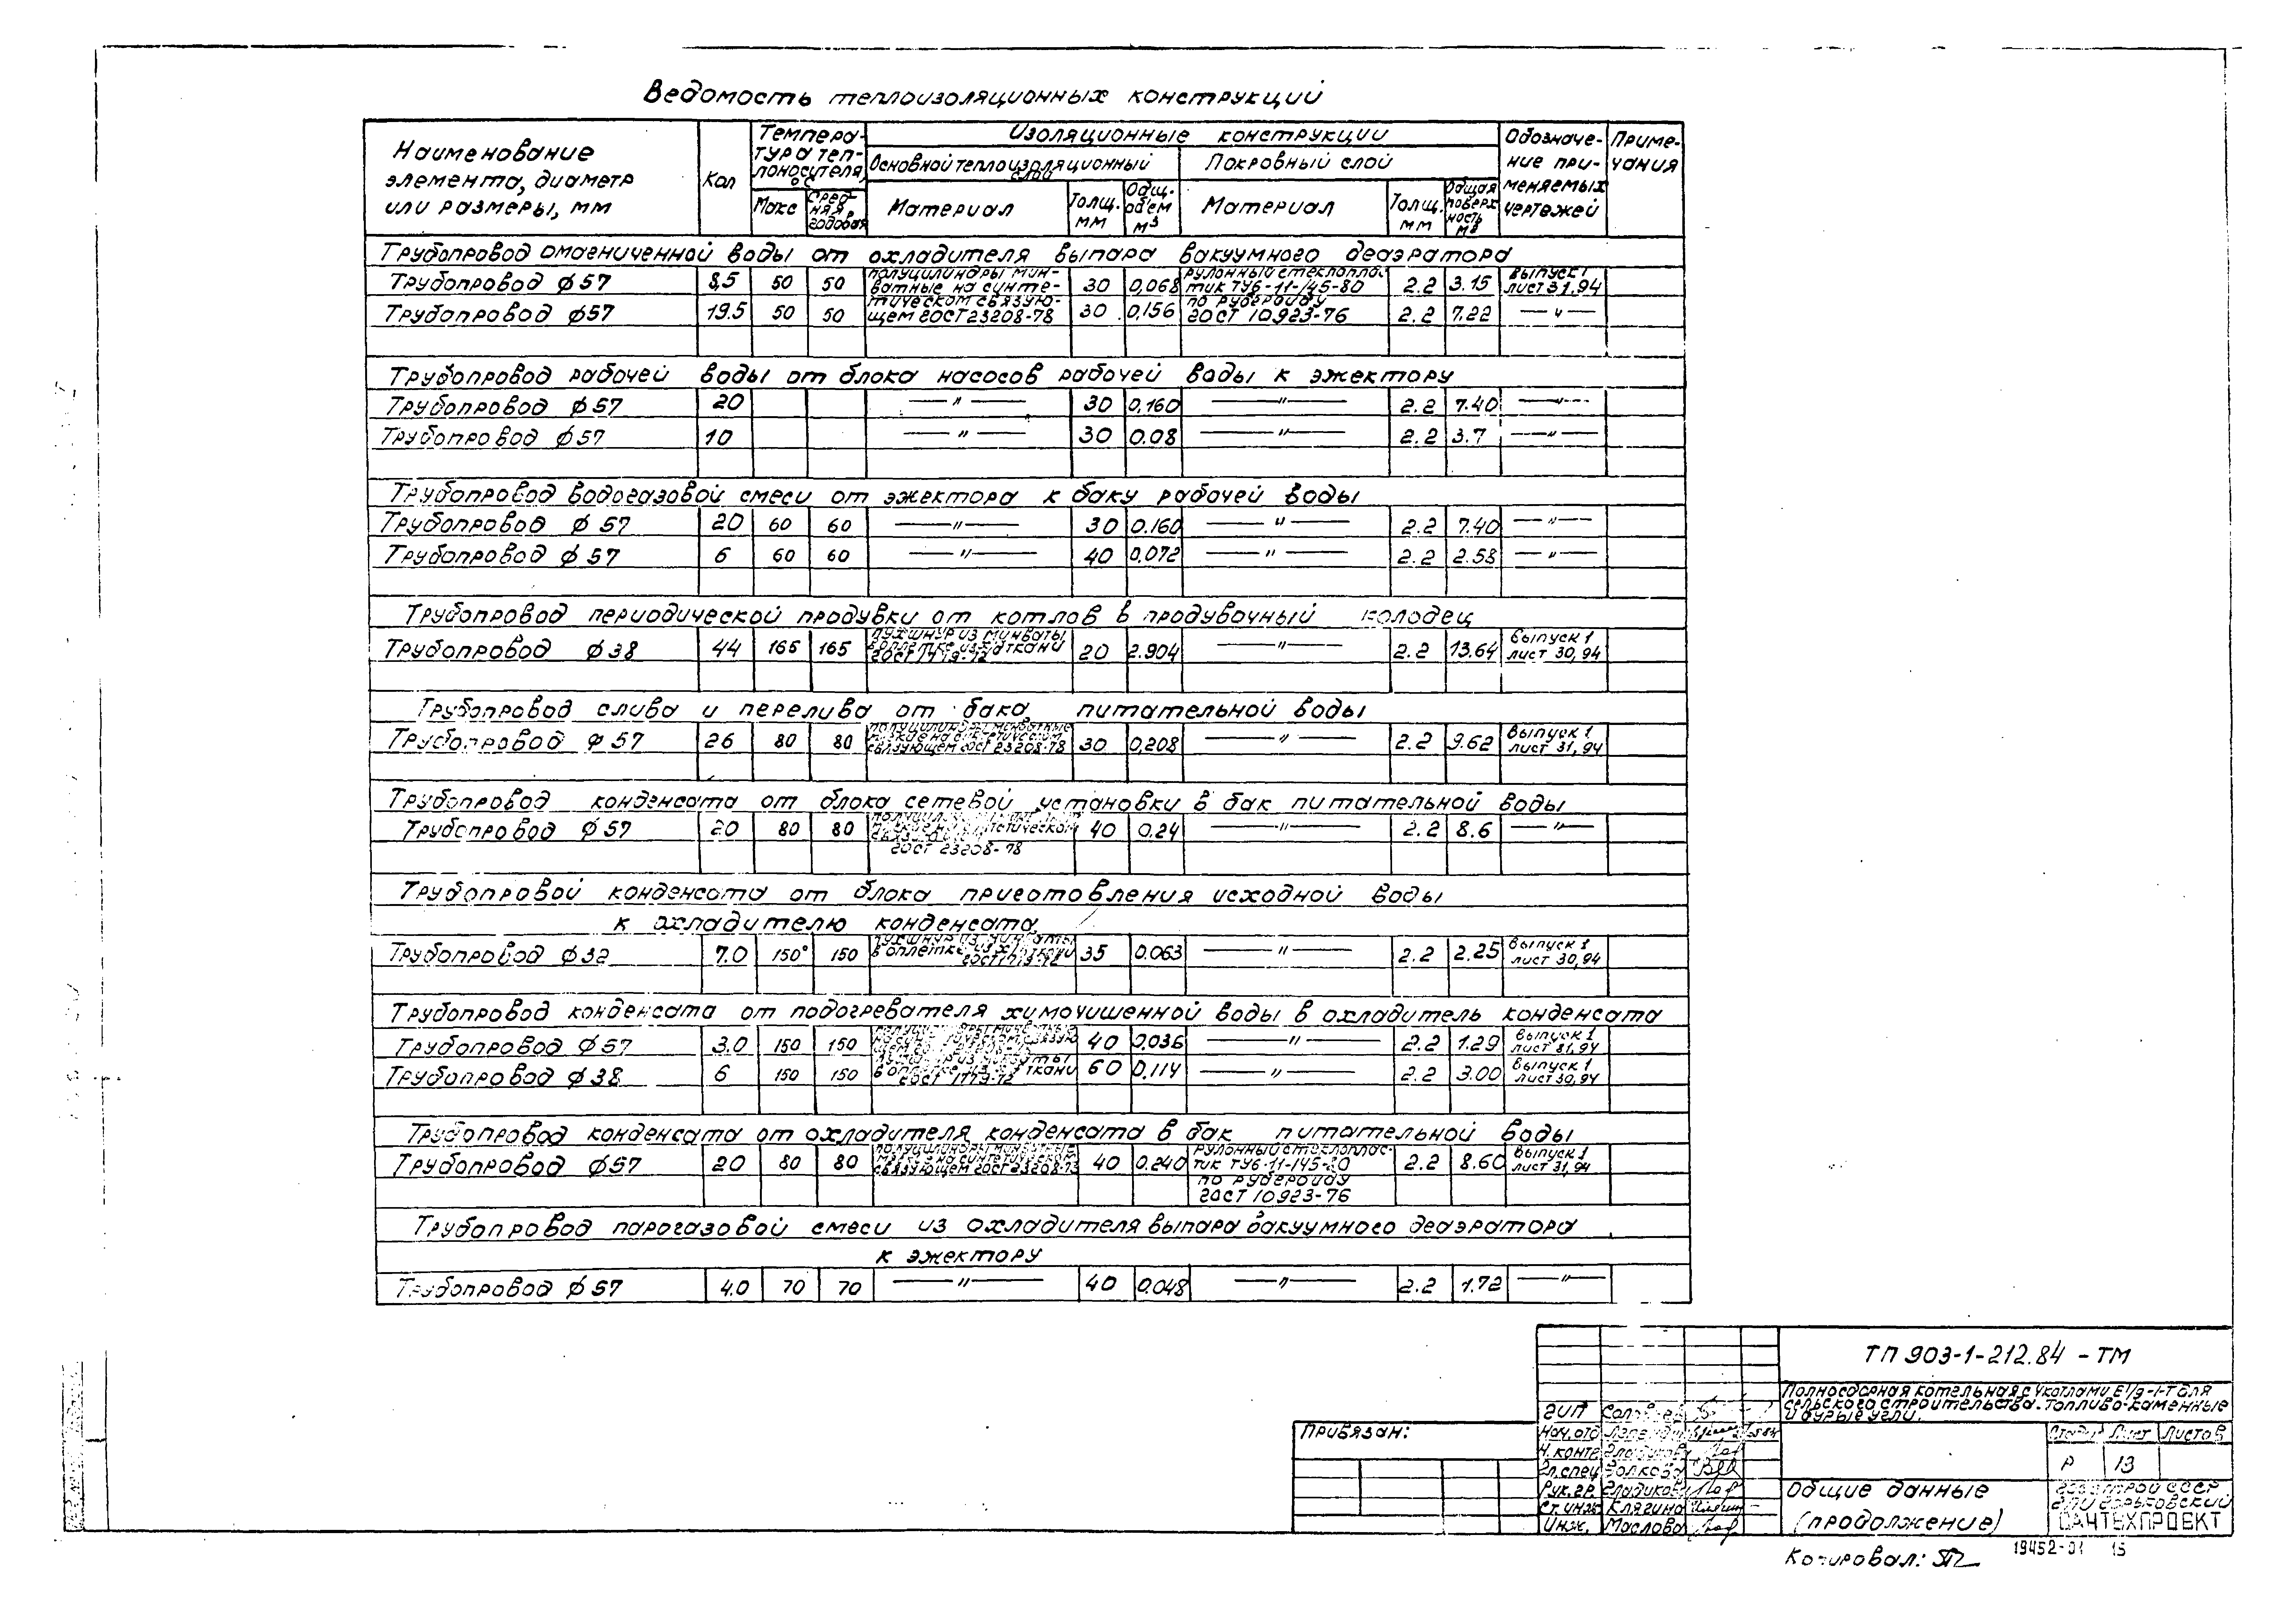 Ведомость теплоизоляционных конструкций
Наименование элемента, диаметр или размеры, мм
Кол
Температура теплоносителя, °С
Макс
Средняя годовая
Изоляционные конструкции
Основной теплоизоляционный слой
Покровный слой
Материал
Толщ. мм
Общ. объем м3
Материал
Толщ. мм
Общая поверхность м2
Обозначение применяемых чертежей
Примечания
Трубопровод омагниченной воды от охладителя выпара вакуумного деаэратора
Трубопровод ф57 8,5 50 50 полуцилиндры минватные на синте- 30 0,068 рулонный стеклоплас-тик ТУ6-11-145-80 2.2 3.15 выпуск 1 лист 31,94
Трубопровод ф57 19.5 50 50 тическом связующем ГОСТ 23208-78 30 0,156 по рубероиду ГОСТ 10923-76 2.2 7.22 —"—
Трубопровод рабочей воды от блока насосов рабочей воды к эжектору
Трубопровод ф57 20 —"— 30 0,160 —"— 2.2 7.40 —"—
Трубопровод ф57 10 —"— 30 0.08 —"— 2.2 3.7 —"—
Трубопровод водогазовой смеси от эжектора к баку рабочей воды
Трубопровод ф57 20 60 60 —"— 30 0.160 —"— 2.2 7.40 —"—
Трубопровод ф57 6 60 60 —"— 40 0,072 —"— 2.2 2.58 —"—
Трубопровод периодической продувки от котлов в продувочный колодец
Трубопровод ф38 44 165 165 пухшнур из минваты в оплетке из х/ткани 20 2.904 —"— 2.2 13.64 выпуск 1 лист 30,94
Трубопровод слива и перелива от бака питательной воды
Трубопровод ф57 26 80 80 связующем ГОСТ 23208-78 30 0,208 —"— 2.2 9.62 выпуск 1 лист 31,94
Трубопровод конденсата от блока сетевой установки в бак питательной воды
Трубопровод ф57 20 80 80 ГОСТ 23208-78 40 0.24 —"— 2.2 8.6 —"—
Трубопровой конденсата от блока приготовления исходной воды
к охладителю конденсата
Трубопровод ф32 7.0 150° 150 в оплетке 35 0.063 —"— 2.2 2.25 выпуск 1 лист 30,94
Трубопровод конденсата от подогревателя химочишенной воды в охладитель конденсата
Трубопровод ф57 3.0 150 150 40 0.036 —"— 2.2 1.29 выпуск 1 лист 31,94
Трубопровод ф38 6 150 150 60 0,114 —"— 2.2 3.00 выпуск 1 лист 30,94
Трубопровод конденсата от охладителя конденсата в бак питательной воды
Трубопровод ф57 20 80 80 связующем ГОСТ 23208-78 40 0.240 рулонный стеклоплас-тик ТУ6-11-145-80 2.2 8.60 выпуск 1 лист 31,94
по рубероиду
ГОСТ 10923-76
Трубопровод парогазовой смеси из охладителя выпара вакуумного деаэратора
к эжектору
Трубопровод ф57 4.0 70 70 —"— 40 0.048 —"— 2.2 1.72 —"—
ТП 903-1-212.84 - ТМ
Полносборная котельная с 4 котлами Е 1/9-1-Т для
сельского строительства. Топливо-каменные
и бурые угли.
Привязан:
ГИП
Нач. отд
Н. контр
Гл. спец Волкова
Рук. гр. Гладикова
Ст. инж Клягина
Инж. Маслова
Стадия Лист Листов
Р 13
Общие данные
(продолжение)
Госстрой СССР
ГПИ Горьковский
САНТЕХПРОЕКТ
Копировал:
19452-01 15